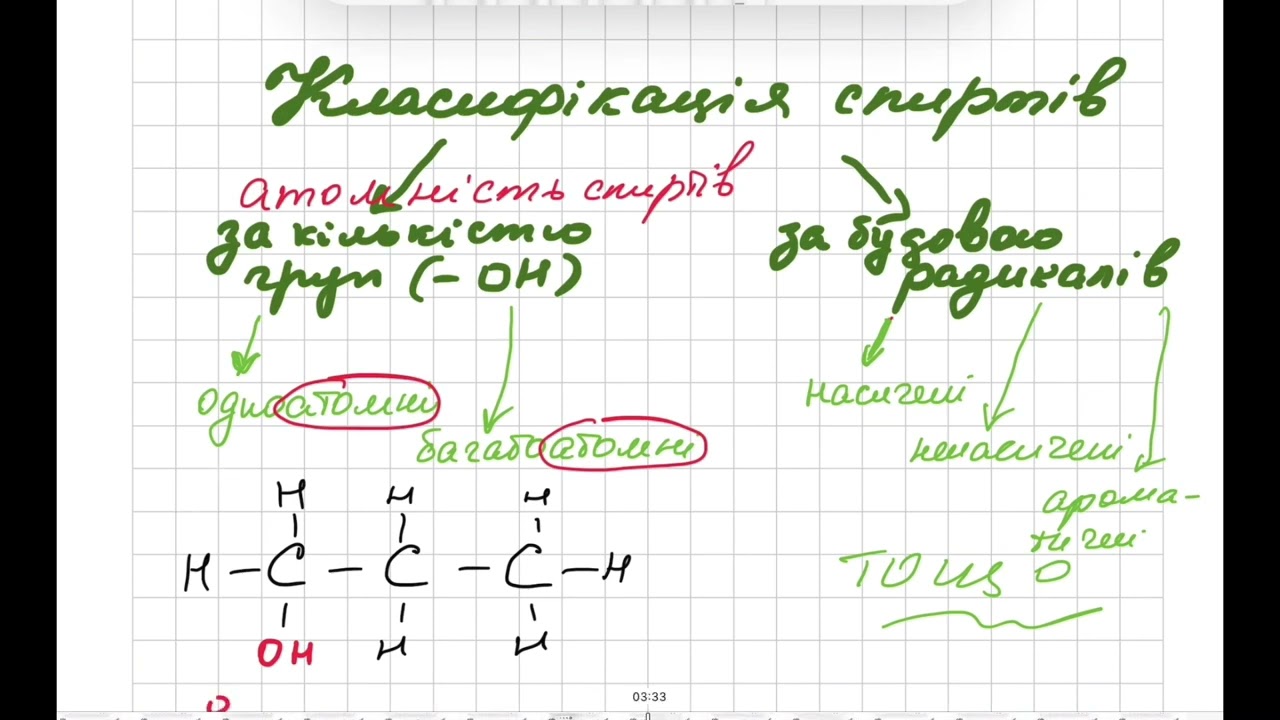 Класифікація спиртів
атомність спиртів
за кількістю
груп (- ОН)
за будовою
радикалів
одноатомні
багатоатомні
насичені
ненасичені
арома-
тичні
тощо
H H H
H - C - C - C - H
OH H H
03:33